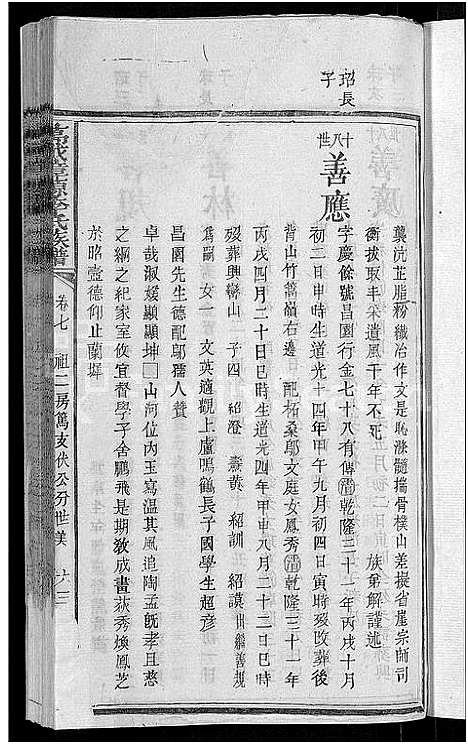 龔沆芷脂粉織冶作文是恥滌髓搗骨樸山差擬省崖宗師司
衡拔取丰采遺風千年不死　族弟解謹述
瑫長子
十八世
善應
字慶餘號昌園行金七十八有傳清乾隆三十一年丙戌十月
初二日申時生道光十四年甲午九月初四日寅時歿改葬後
背山竹篙嶺右邊　配柘桑鄔文庭女鳳秀清乾隆三十一年
丙戌四月二十日巳時生道光四年甲申八月二十三日巳時
歿葬興巒山　子四　紹澄　燾黃　紹訓　紹謨出繼善規
爲嗣　女一　文英適觀上盧鳴鶴長子國學生超彥
昌園先生德配鄔孺人贊
卓哉淑媛顯顯坤□山河位內玉寫溫其風追陶孟既孝且慈
之綱之紀家室攸宜督學子舍鵬飛是期敎成畫荻秀煥鳳芝
於昭壼德仰止蘭墀
卷七　祖二房篤支伏公分世美